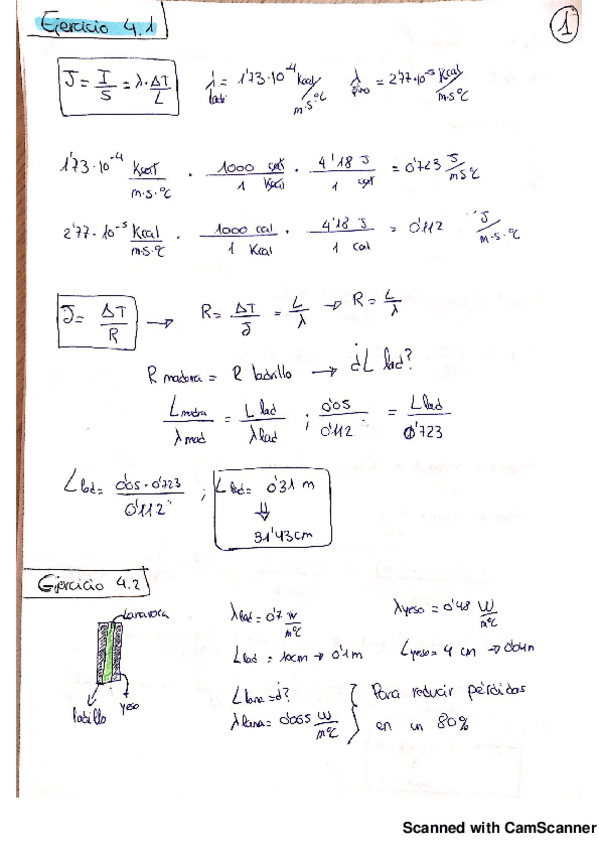 Ejercicio 4.1
1
J = I/S = λ · ΔT/L
λ ladri = 1'73·10⁻⁴ Kcal/m·s·ºC
λ pino = 2'77·10⁻⁵ Kcal/m·s·ºC
1'73·10⁻⁴ Kcal/m·s·ºC · 1000 cal/1 Kcal · 4'18 J/1 cal = 0'723 J/m s ºC
2'77·10⁻⁵ Kcal/m·s·ºC · 1000 cal/1 Kcal · 4'18 J/1 cal = 0'112 J/m·s·ºC
J = ΔT/R → R = ΔT/J = L/λ → R = L/λ
R madera = R ladrillo → ¿L lad?
L madra/λ mad = L lad/λ lad ; 0'05/0'112 = L lad/0'723
L lad = 0'05·0'723/0'112 ; L lad = 0'31 m
⇓
31'43 cm
Ejercicio 4.2
lana roca
ladrillo
yeso
λ lad = 0'7 W/mºC
λ yeso = 0'48 W/mºC
L lad = 10cm → 0'1m
L yeso = 4 cm → 0'04m
L lana = ¿?
λ lana = 0'065 W/mºC
Para reducir pérdidas
en un 80%
Scanned with CamScanner